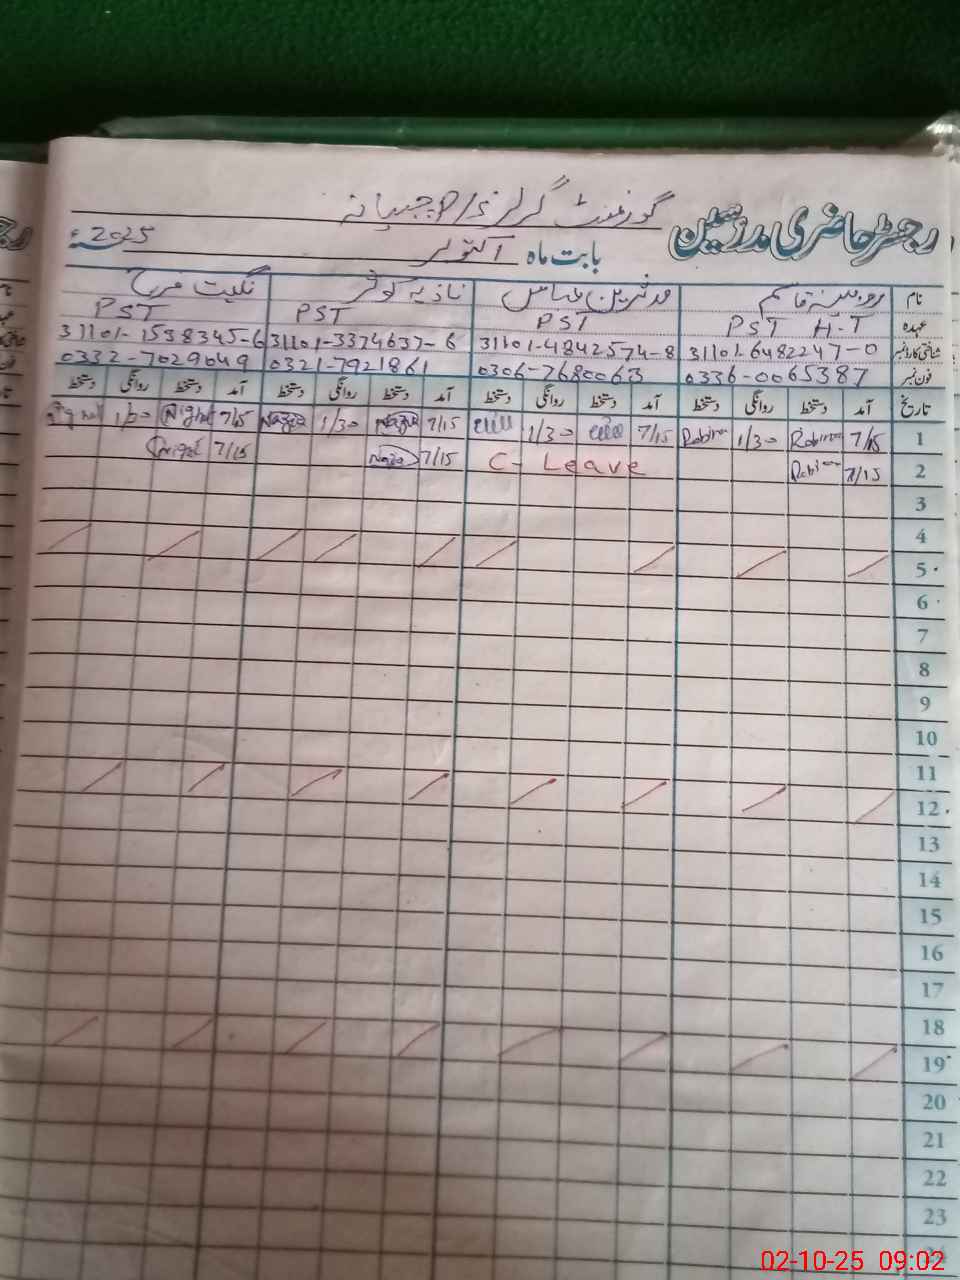 رجسٹر حاضری مدرسین
گورنمنٹ گرلز P/S چھینہ
بابت ماہ اکتوبر 2025ء
نام روبینہ قاسم مدثرین عباس نازیہ کوثر نگہت
عہدہ PST H-T PST PST PST
شناختی کارڈ نمبر 31101-6482247-0 31101-4842574-8 31101-3374637-6 31101-1538345-6
فون نمبر 0336-0065387 0306-7680063 0321-7921861 0332-7029049
تاریخ آمد دستخط روانگی دستخط آمد دستخط روانگی دستخط آمد دستخط روانگی دستخط آمد دستخط روانگی دستخط
1 7/15 Robina 1/30 Robina 7/15 1/30 7/15 Nazia 1/30 Nazia 7/15 Nighat 1/30 Nighat
2 7/15 Robina C- Leave 7/15 Nazia 7/15 Nighat
3
4
5
6
7
8
9
10
11
12
13
14
15
16
17
18
19
20
21
22
23
24
02-10-25 09:02